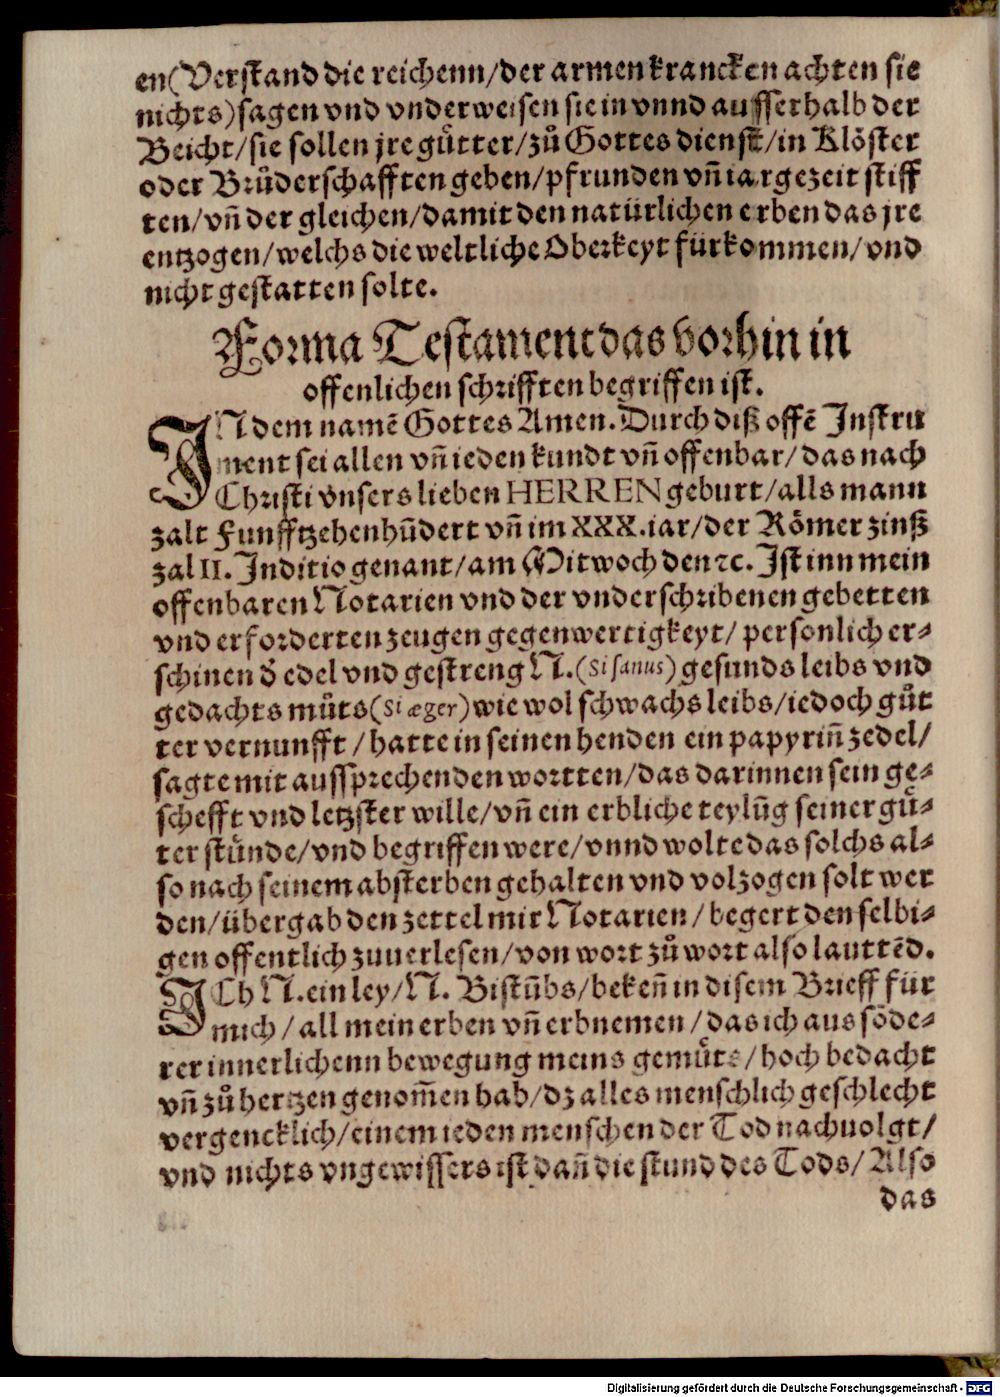 en (Verstand die reichenn/der armen krancken achten sie
nichts) sagen vnd vnderweisen sie in vnnd ausserhalb der
Beicht/sie sollen jre guͤtter/zuͦ Gottes dienst/in Kloͤster
oder Bruͤderschafften geben/pfrunden vñ iargezeit stiff
ten/vñ der gleichen/damit den natürlichen erben das jre
entzogen/welchs die weltliche Oberkeyt fürkommen/vnd
nicht gestatten solte.
Forma Testament das vorhin in
offenlichen schrifften begriffen ist.
IN dem namē Gottes Amen. Durch diß offē Instru
ment sei allen vñ ieden kundt vñ offenbar/das nach
Christi vnsers lieben HERREN geburt/alls mann
zalt Funfftzehenhūdert vñ im XXX.iar/der Roͤmer zinß
zal II. Inditio genant/am Mitwoch den ꝛc. Ist inn mein
offenbaren Notarien vnd der vnderschribenen gebetten
vnd erforderten zeugen gegenwertigkeyt/ personlich er⸗
schinen d̄ edel vnd gestreng N. (Si sanus) gesunds leibs vnd
gedachts muͤts (Si æger) wie wol schwachs leibs/iedoch guͤt
ter vernunfft/hatte in seinen henden ein papyriñ zedel/
sagte mit aussprechenden wortten/das darinnen sein ge⸗
schefft vnd letzster wille/vñ ein erbliche teylūg seiner guͤ⸗
ter stuͤnde/vnd begriffen were/vnnd wolte das solchs al⸗
so nach seinem absterben gehalten vnd volzogen solt wer
den/übergab den zettel mir Notarien/begert den selbi⸗
gen offentlich zuuerlesen/von wort zuͦ wort also lauttēd.
ICh N. ein ley/N. Bistūbs/bekeñ in disem Brieff für
mich/all mein erben vñ erbnemen/das ich aus soͤde⸗
rer innerlichenn bewegung meins gemuͤts/hoch bedacht
vñ zuͦ hertzen genom̄en hab/dz alles menschlich geschlecht
vergencklich/einem ieden menschen der Tod nachuolgt/
vnd nichts vngewissers ist dañ die stund des Tods/Also
das
Digitalisierung gefördert durch die Deutsche Forschungsgemeinschaft - DFG